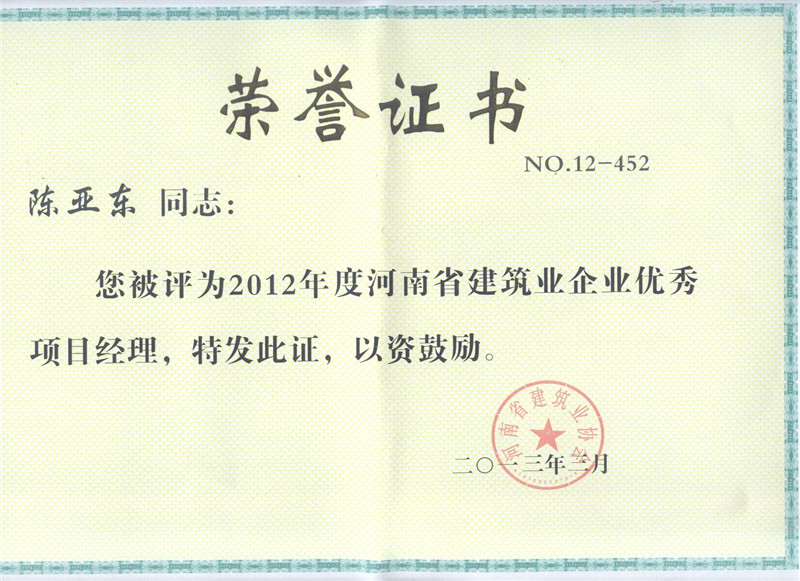 荣誉证书
NO.12-452
陈亚东 同志：
您被评为2012年度河南省建筑业企业优秀
项目经理，特发此证，以资鼓励。
河南省建筑业协会
二〇一三年三月